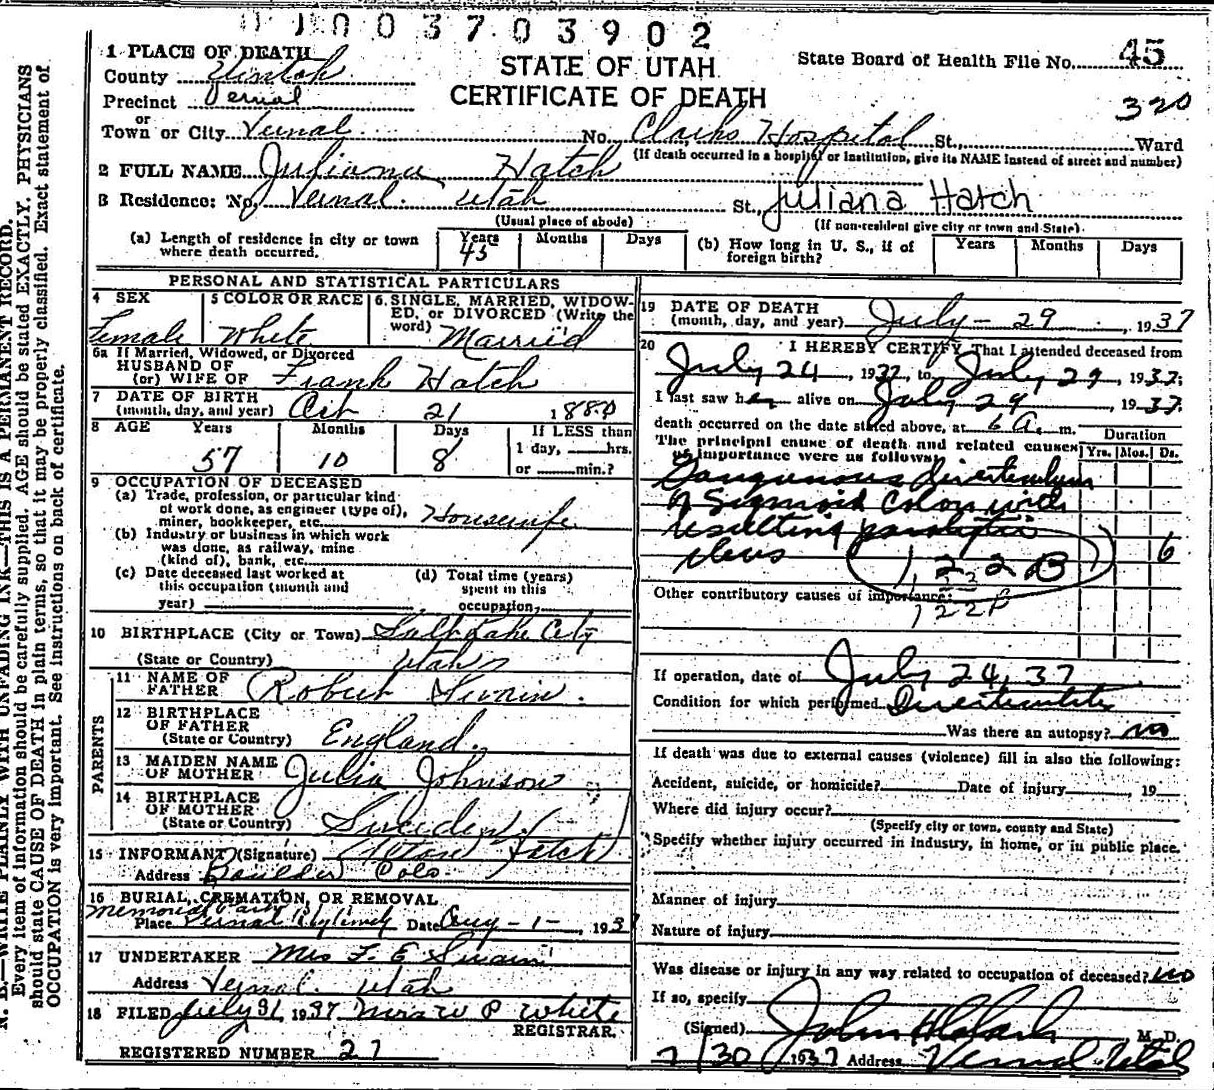 0 1 0 0 3 7 0 3 9 0 2
STATE OF UTAH
CERTIFICATE OF DEATH
State Board of Health File No. 45
320
1 PLACE OF DEATH
County Uintah
Precinct Vernal
or
Town or City Vernal No. Clarks Hospital St., Ward
(If death occurred in a hospital or institution, give its NAME instead of street and number)
2 FULL NAME Juliana Hatch
3 Residence: No. Vernal. Utah St., Juliana Hatch
(Usual place of abode) (If non-resident give city or town and State)
(a) Length of residence in city or town where death occurred. Years 45 Months Days
(b) How long in U. S., if of foreign birth? Years Months Days
PERSONAL AND STATISTICAL PARTICULARS
4 SEX
Female
5 COLOR OR RACE
White
6. SINGLE, MARRIED, WIDOWED, or DIVORCED (Write the word) Married
6a If Married, Widowed, or Divorced
HUSBAND OF
(or) WIFE OF Frank Hatch
7 DATE OF BIRTH
(month, day, and year) 21 1880
8 AGE Years Months Days If LESS than
57 10 8 1 day, hrs.
or min.?
9 OCCUPATION OF DECEASED
(a) Trade, profession, or particular kind
of work done, as engineer (type of),
miner, bookkeeper, etc. Housewife
(b) Industry or business in which work
was done, as railway, mine
(kind of), bank, etc.
(c) Date deceased last worked at
this occupation (month and
year)
(d) Total time (years)
spent in this
occupation,
10 BIRTHPLACE (City or Town) Salt Lake City
(State or Country) Utah
PARENTS
11 NAME OF
FATHER Robert Swain.
12 BIRTHPLACE
OF FATHER
(State or Country) England.
13 MAIDEN NAME
OF MOTHER Julia Johnson
14 BIRTHPLACE
OF MOTHER
(State or Country) Sweden
15 INFORMANT (Signature) Hatch
Address Boulder Colo
16 BURIAL, CREMATION, OR REMOVAL
Memorial Park
Place Vernal Date Aug - 1 - , 1937
17 UNDERTAKER Mrs F. E. Swain
Address Vernal. Utah
18 FILED July 31, 1937 P White
REGISTRAR.
REGISTERED NUMBER 27
19 DATE OF DEATH
(month, day, and year) July - 29 , 1937
20 I HEREBY CERTIFY, That I attended deceased from
July 24, 1937, to July 29, 1937;
I last saw her alive on July 29, 1937.
death occurred on the date stated above, at 6 A. m.
The principal cause of death and related causes
of importance were as follows:
Duration
Yrs. Mos. Ds.
Gangrenous diverticulum
of Sigmoid Colon with
resulting paralytic
ileus 6
122B
Other contributory causes of importance:
122B
If operation, date of July 24, 37
Condition for which performed Diverticulitis
Was there an autopsy? no
If death was due to external causes (violence) fill in also the following:
Accident, suicide, or homicide? Date of injury , 19
Where did injury occur?
(Specify city or town, county and State)
Specify whether injury occurred in industry, in home, or in public place.
Manner of injury
Nature of injury
Was disease or injury in any way related to occupation of deceased? no
If so, specify
(Signed) John H Clark M. D.
7/30 1937 Address Vernal Utah
N. B.—WRITE PLAINLY WITH UNFADING INK—THIS IS A PERMANENT RECORD.
Every item of information should be carefully supplied. AGE should be stated EXACTLY. PHYSICIANS
should state CAUSE OF DEATH in plain terms, so that it may be properly classified. Exact statement of
OCCUPATION is very important. See instructions on back of certificate.